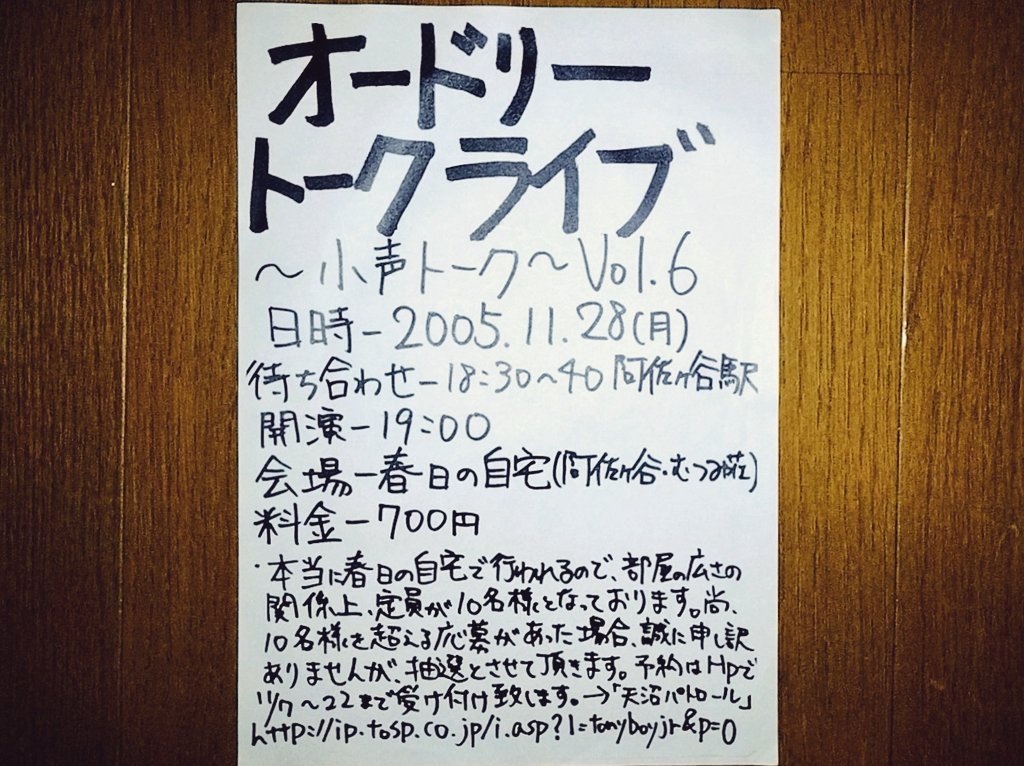 オードリー
トークライブ
〜小声トーク〜Vol.6
日時-2005.11.28(月)
待ち合わせ-18:30〜40阿佐ヶ谷駅
開演-19:00
会場-春日の自宅(阿佐ヶ谷・むつみ荘)
料金-700円
・本当に春日の自宅で行われるので、部屋の広さの
関係上、定員が10名様となっております。尚、
10名様を超える応募があった場合、誠に申し訳
ありませんが、抽選とさせて頂きます。予約はHpで
〜22まで受け付け致します。→「天沼パトロール」
http://ip.tosp.co.jp/i.asp?I=tonyboyjr&p=0